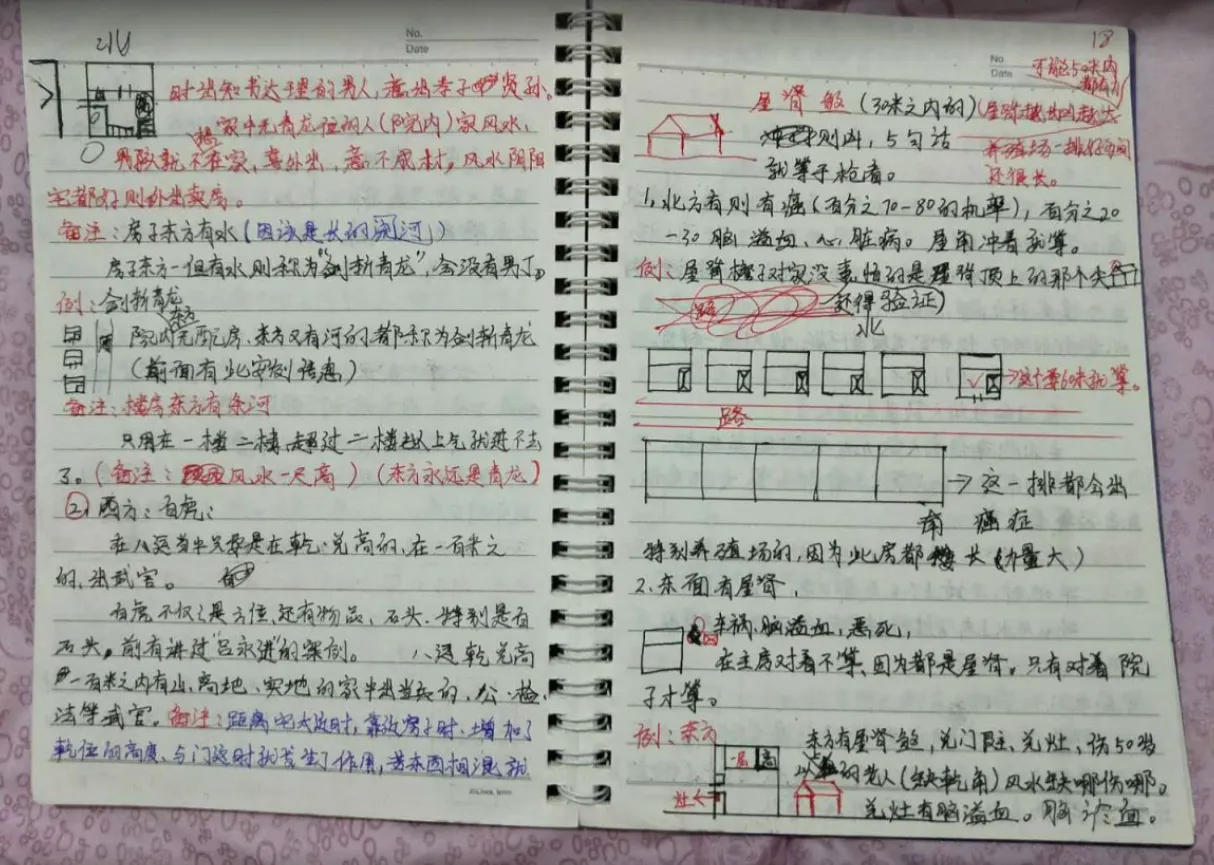 No.
Date
时出知书达理的男人,意出孝子贤孙。
家中无青龙位的人(院内)家风水,
男孩就不在家,喜外出,意不成材,风水阴阳
宅都好则外出卖房。
备注:房子东方有水(因该是长的河)
房子东方一但有水则称为"剑斩青龙",会没有男丁。
例:剑斩青龙
东方
院内无配房,东方又有河的,都称为剑斩青龙
(前面有此案例讲患)
备注:楼房东方有条河
只用在一楼二楼,超过二楼以上气就进不去
了。(备注:风水一尺高)(东方永远是青龙)
②西方:白虎:
在八运当中只要是在乾、兑高的,在一百米之
的,出武官。
白虎不仅是方位,还有物品、石头,特别是石
石头,前有讲过"吕永进"的案例。 八运乾兑高
一百米之内有山、高地、实地的家中出当兵的、公、检、
法等武官。备注:距离宅太近时,靠近房子时,增加了
乾位的高度、与门近时就发生了作用,若东西相混就
18
No
Date
不能50米内
屋脊煞(30米之内的)(屋脊越
则凶,与句话
就等于枪毒。
养殖场一排好多间
还很长。
1、北方有则有癌(百分之70-80的机率),百分之20
-30脑溢血、心脏病。屋角冲着就算。
例:屋脊檩子对家没事,怕的是屋脊顶上的那个尖
路 还得验证)
北
→这个要60米就算。
路
→这一排都会出
南 癌症
特别养殖场的,因为此房都长(力量大)
2.东面有屋脊,
车祸,脑溢血,恶死,
在主房对着不算,因为都是屋脊。只有对着院
子才算。
例:东方
高
灶
东方有屋脊煞,兑门、兑灶、伤50岁
以的老人(缺乾角)风水缺哪伤哪。
兑灶有脑溢血。脑冷血。